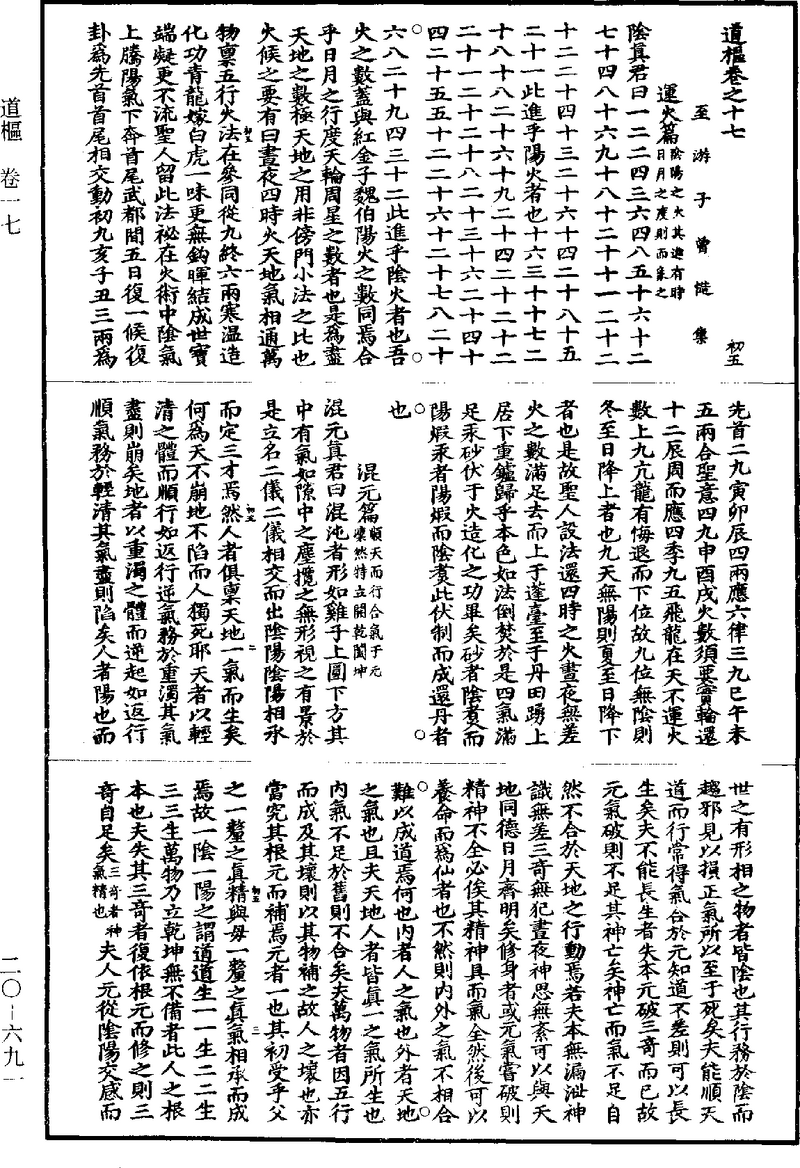 道樞卷之十七
至游子曾慥集 初五
運火篇 陰陽之火其進有時
日月之度則而象之
陰真君曰一二二四三六四八五十六十二
七十四八十六九十八十二十十一二十二
十二二十四十三二十六十四二十八十五
三十一此進乎陽火者也十六三十十七二
十八十八二十六十九二十四二十二十二
二十一二十二十八二十三十六二十四十
四二十五五十二二十六十二十七八二十
六八二十九四三十二此進乎陰火者也吾
火之數蓋與紅金子魏伯陽火之數同焉合
乎日月之行度天輪周星之數者也是爲盡
天地之數極天地之用非傍門小法之比也
火候之要有曰晝夜四時火天地氣相通萬
物禀五行火法在參同從九終六兩寒温造
化功青龍嫁白虎一味更無鈎暉結成世寶
端凝更不流聖人留此法祕在火術中陰氣
上騰陽氣下奔首尾武都間五日復一候復
卦爲先首首尾相交動初九亥子丑三兩爲
先首二九寅卯辰四兩應六律三九巳午未
五兩合聖意四九申酉戌火數須要實輪還
十二辰周而應四季九五飛龍在天不運火
數上九亢龍有悔退而下位故九位無陰則
冬至日降上者也九天無陽則夏至日降下
者也是故聖人設法還四時之火晝夜無差
火之數滿足去而上于蓬臺至于丹田踴上
居下重鑪歸乎本色如法倒焚於是四氣滿
足汞砂伏于火造化之功畢矣砂者陰煑而
陽煆汞者陽煆而陰煑此伏制而成還丹者
也
混元篇 順天而行合氣于元
凜然特立闢乾闔坤
混元真君曰混沌者形如雞子上圓下方其
中有氣如隙中之塵攬之無形視之有景於
是立名二儀二儀相交而出陰陽陰陽相承
而定三才焉然人者俱禀天地一氣而生矣
何爲天不崩地不陷而人獨死耶天者以輕
清之體而順行如返行逆氣務於重濁其氣
盡則崩矣地者以重濁之體而逆起如返行
順氣務於輕清其氣盡則陷矣人者陽也而
世之有形相之物者皆陰也其行務於陰而
趨邪見以損正氣所以至于死矣夫能順天
道而行常得氣合於元知道不差則可以長
生矣夫不能長生者失本元破三奇而已故
元氣破則不足其神亡矣神亡而氣不足自
然不合於天地之行動焉若夫本無漏泄神
識無差三奇無犯晝夜神思無紊可以與天
地同德日月齊明矣修身者或元氣嘗破則
精神不全必俟其精神具而氣全然後可以
養命而爲仙者也不然則内外之氣不相合
難以成道焉何也内者人之氣也外者天地
之氣也且夫天地人者皆真一之氣所生也
内氣不足於舊則不合矣夫萬物者因五行
而成及其壞則以其物補之故人之壞也亦
當究其根元而補焉元者一也其初受乎父
之一釐之真精與母一釐之真氣相承而成
焉故一陰一陽之謂道道生一一生二二生
三三生萬物乃立乾坤無不備者此人之根
本也夫失其三奇者復依根元而修之則三
奇自足矣 三奇者神
氣精也 夫人元從陰陽交感而
道樞 卷一七
二〇—六九一